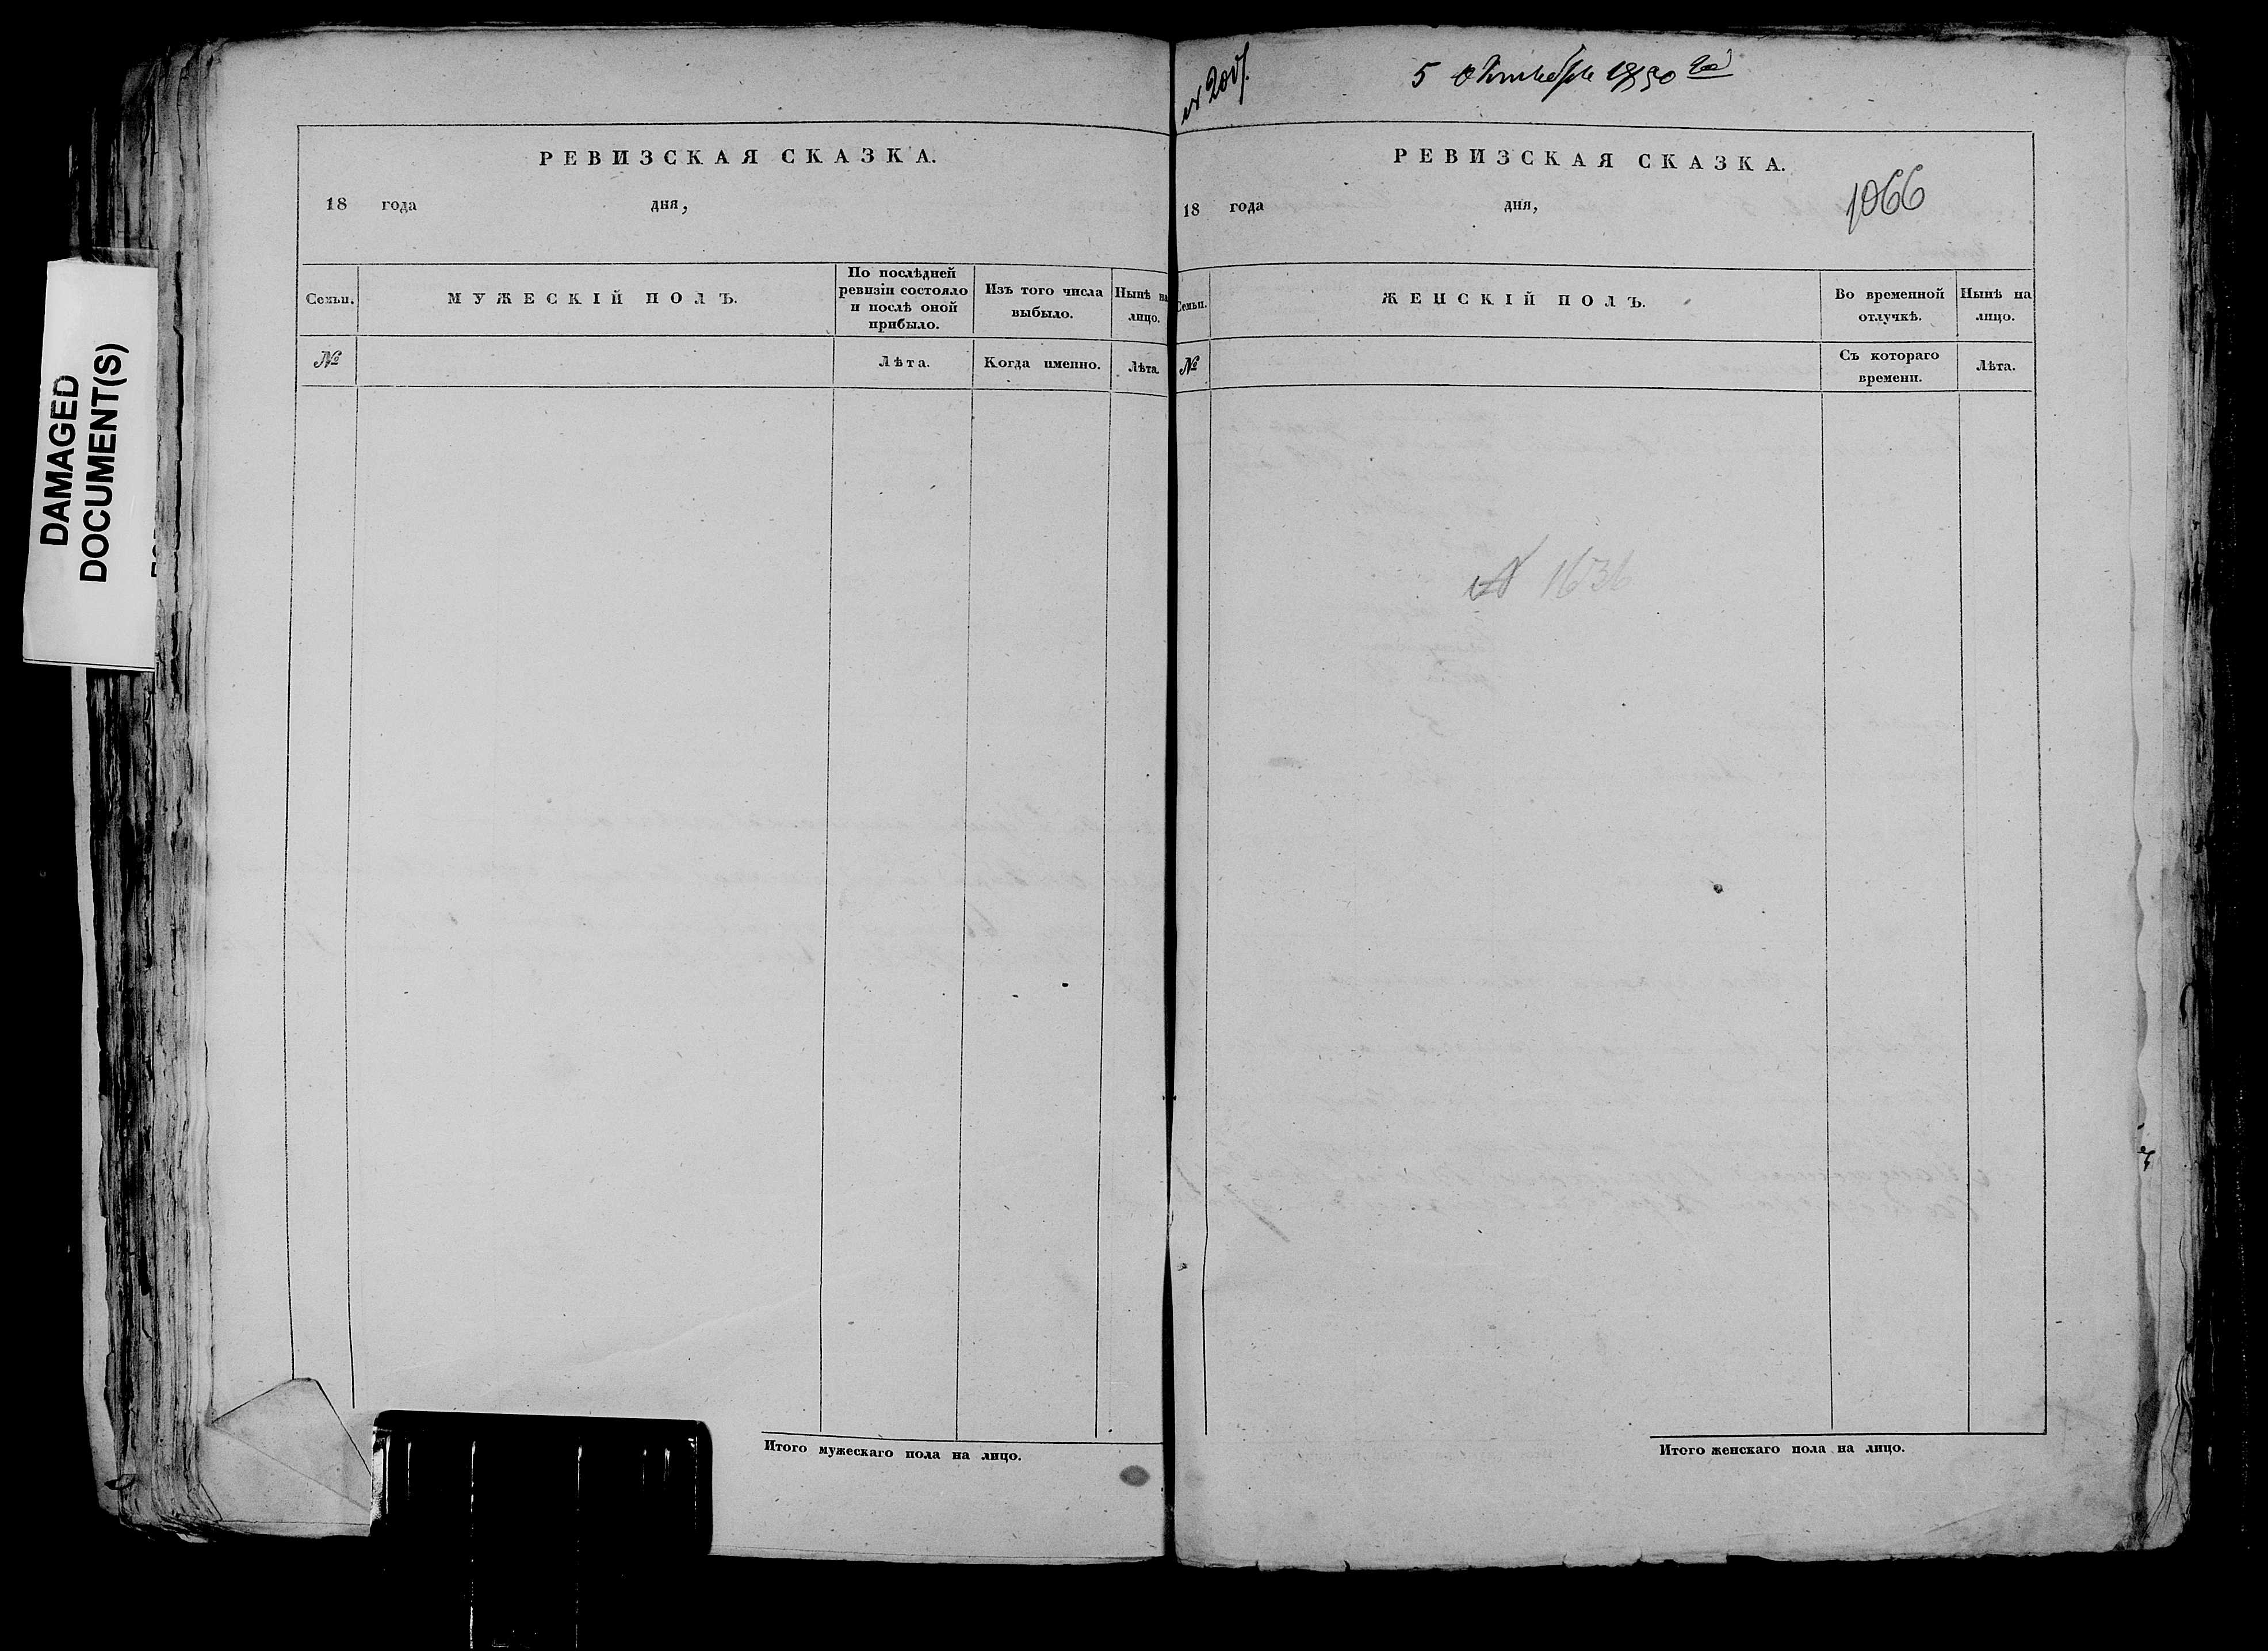 DAMAGED
DOCUMENT(S)
РЕВИЗСКАЯ СКАЗКА.
18 года дня,
Семьи.
МУЖЕСКІЙ ПОЛЪ.
По послѣдней
ревизіи состояло
и послѣ оной
прибыло.
Изъ того числа
выбыло.
Нынѣ на
лицо.
№
Лѣта.
Когда именно.
Лѣта.
Итого мужескаго пола на лицо.
5 октября 1850 года
РЕВИЗСКАЯ СКАЗКА.
18 года дня,
1066
Семьи.
ЖЕНСКІЙ ПОЛЪ.
Во временной
отлучкѣ.
Нынѣ на
лицо.
№
Съ котораго
времени.
Лѣта.
№ 1636
Итого женскаго пола на лицо.